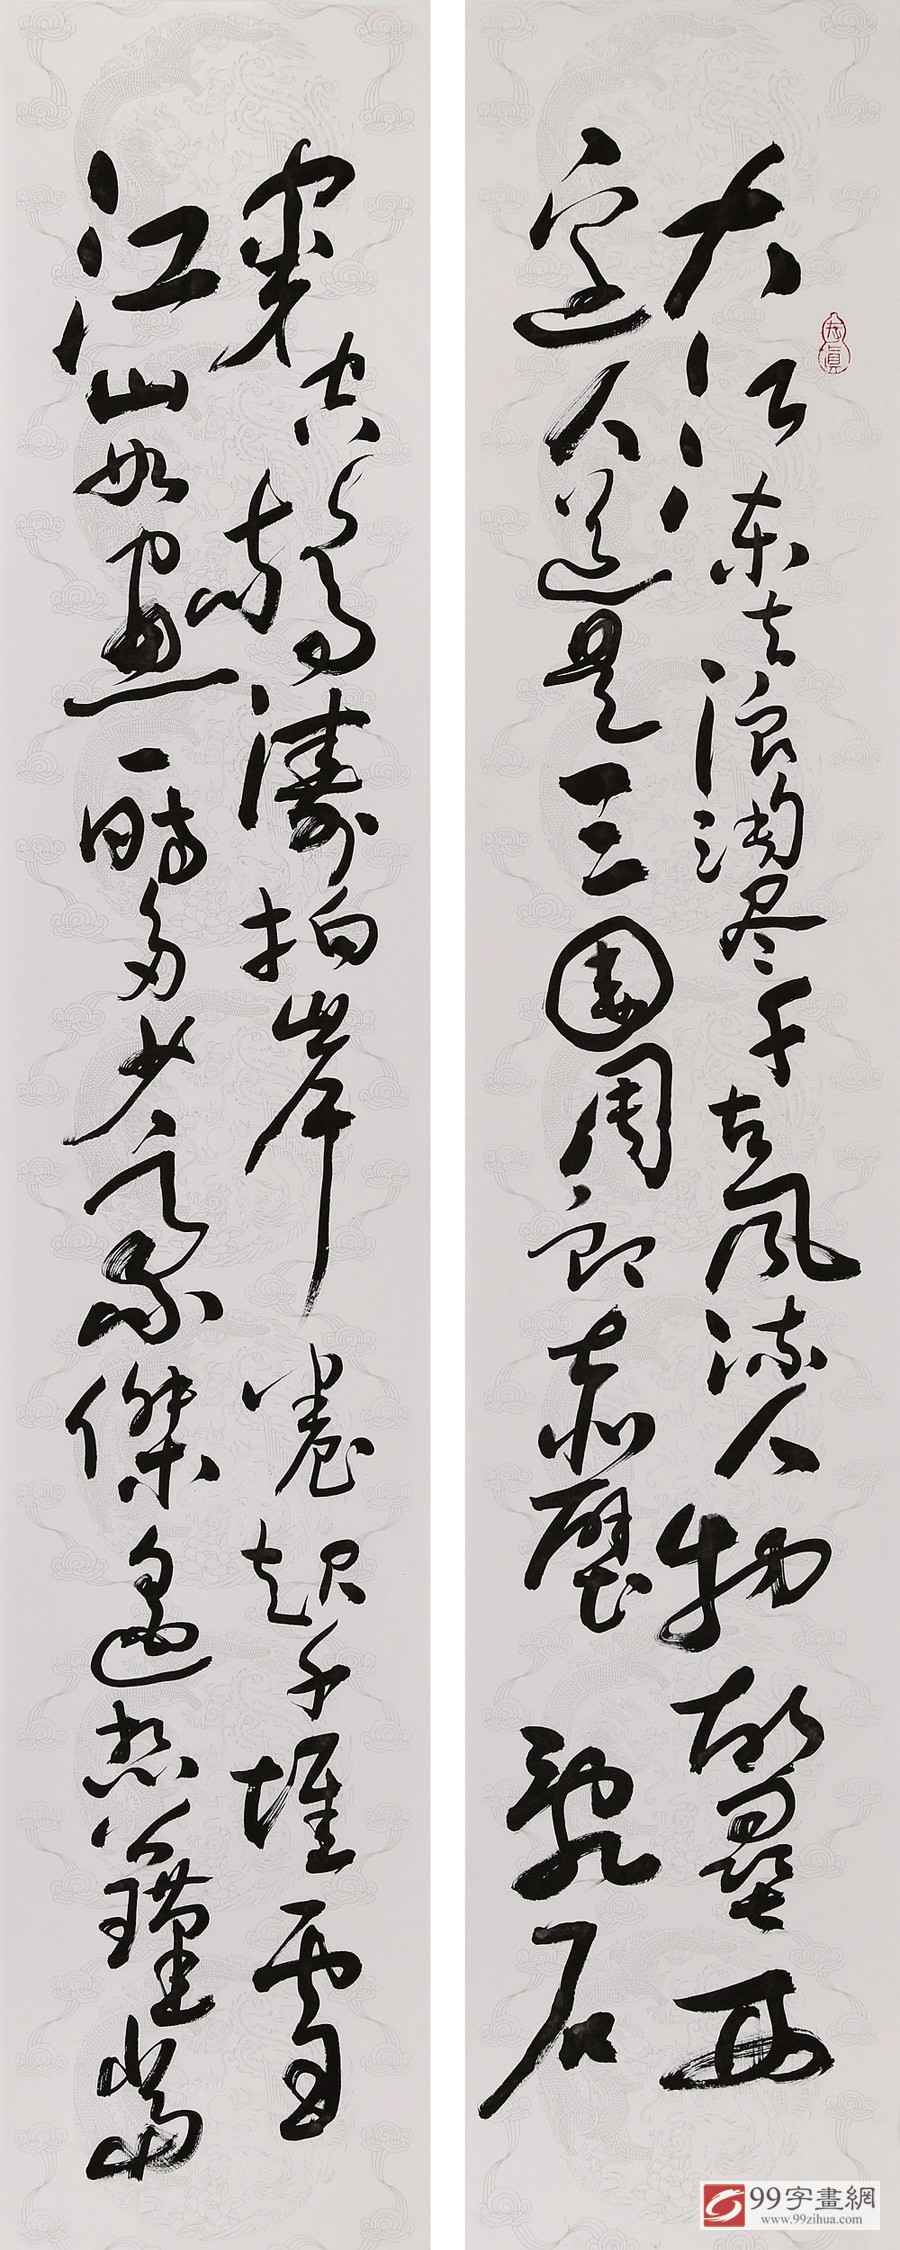 大江東去浪淘尽千古風流人物故壘西
邊人道是三國周郎赤壁亂石
穿空驚濤拍岸卷起千堆雪
江山如畫一時多少豪傑遙想公瑾當
99字畫網
www.99zihua.com